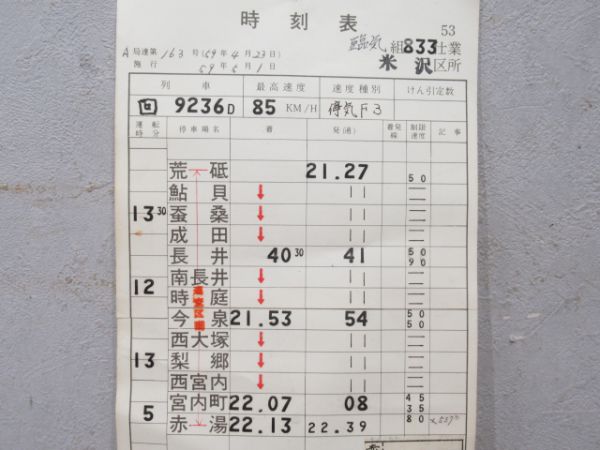 時刻表
53
臨気 組833仕業
A 局達第163号(59年4月23日)
米沢区所
施行 59年6月1日
列車 最高速度 速度種別 けん引定数
回 9236D 85 KM/H 停気F3
運転時分 停車場名 着 発(通) 着発線 制限速度 記事
荒砥 21.27 50
鮎貝 ↓ ||
13 30 蚕桑 ↓ ||
成田 ↓ ||
長井 40 30 41 50 90
12 南長井 ↓ ||
時庭 ↓ ||
今泉 21.53 54 50 50
西大塚 ↓ ||
13 梨郷 ↓ ||
西宮内 ↓ ||
5 宮内町 22.07 08 45 35
赤湯 22.13 22.39 80